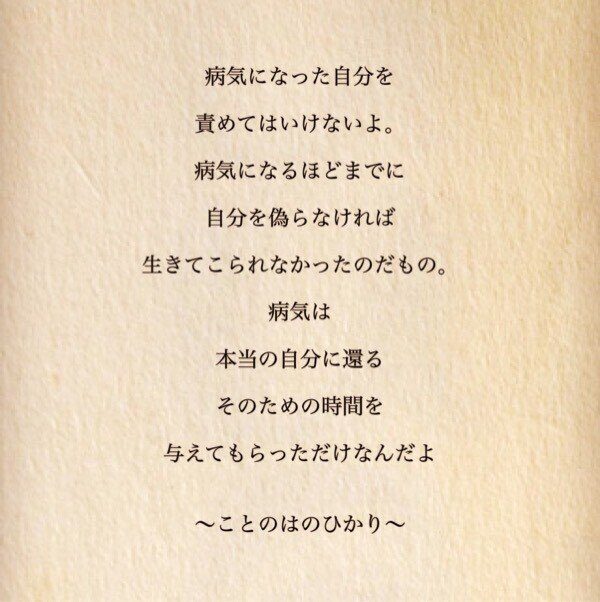 病気になった自分を
責めてはいけないよ。
病気になるほどまでに
自分を偽らなければ
生きてこられなかったのだもの。
病気は
本当の自分に還る
そのための時間を
与えてもらっただけなんだよ
～ことのはのひかり～